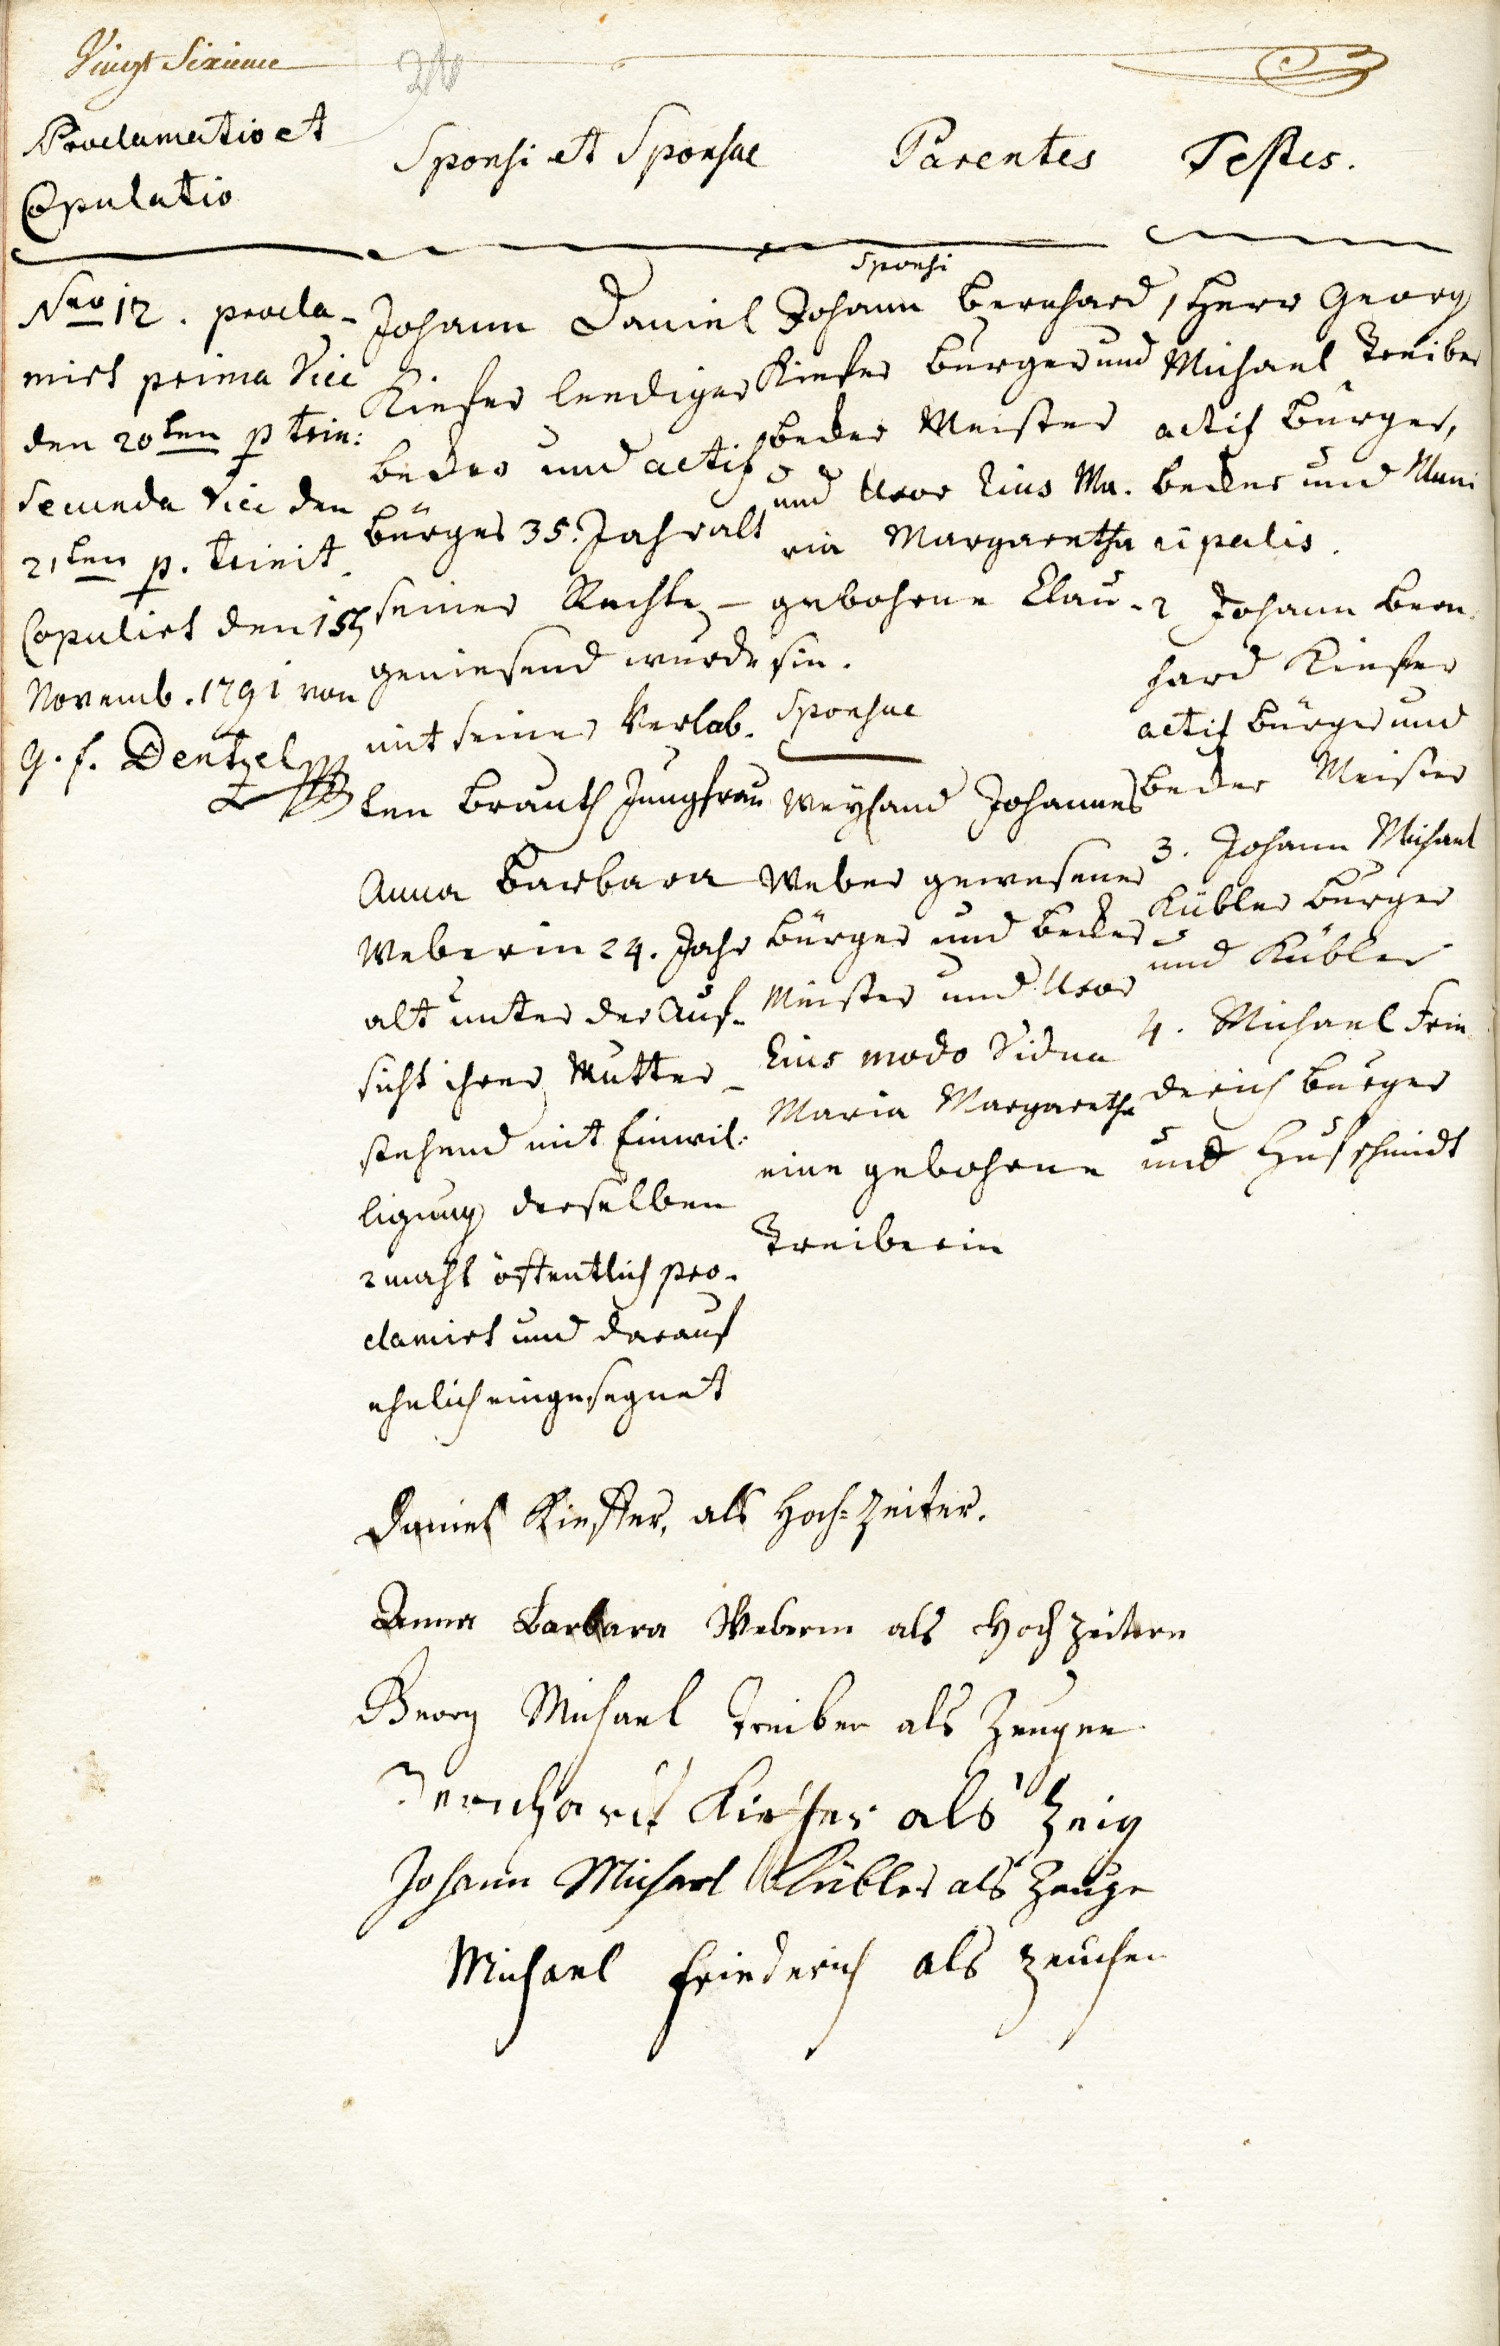 Vingt Sixieme
26
Proclamatio et
Copulatio
Sponsi et Sponsae
Parentes
Testes.
Nro 12. procla-
mirt prima Vice
den 20ten p trin:
Secunda Vice den
21ten p. trinit.
Copulirt den 15
Novemb. 1791 von
G. F. Dentzel
Johann Daniel
Kiefer leediger
beckr und actif
bürger 35. Jahr alt
seiner Rechte –
geniesend wurde
mit seiner Verlob-
ten Brauth Jungfrau
Anna Barbara
Weberin 24. Jahr
alt unter der Auf-
sicht ihrer Mutter –
stehend mit Einwil-
ligung derselben
2 mahl öffentlich pro-
clamirt und darauf
ehelich eingesegnet
Sponsi
Johann Bernhard
Kiefer Burger und
becker Meister
und Uxor Eius Ma-
ria Margaretha
gebohrne Clau-
sin.
Sponsae
Weyland Johannes
Weber gewesener
Bürger und Becker
Meister und Uxor
Eius modo Vidua
Maria Margaretha
eine gebohrne
Treiberin
1 Herr Georg
Michael Treiber
actif Bürger,
becker und Muni
cipalis.
2 Johann Bern-
hard Kiefer
actif Bürger und
becker Meister
3. Johann Michael
Kübler Burger
und Kübler
4. Michael Frie-
derich Burger
und Hufschmidt
Daniel Kieffer, als Hoch-Zeiter.
Anna Barbara Weberin als Hochzeitern
Georg Michael Treiber als Zeugen
Bernhard Kieffer als Zeig
Johann Michael Kübler als Zeuge
Michael Friederich als Zeuchen